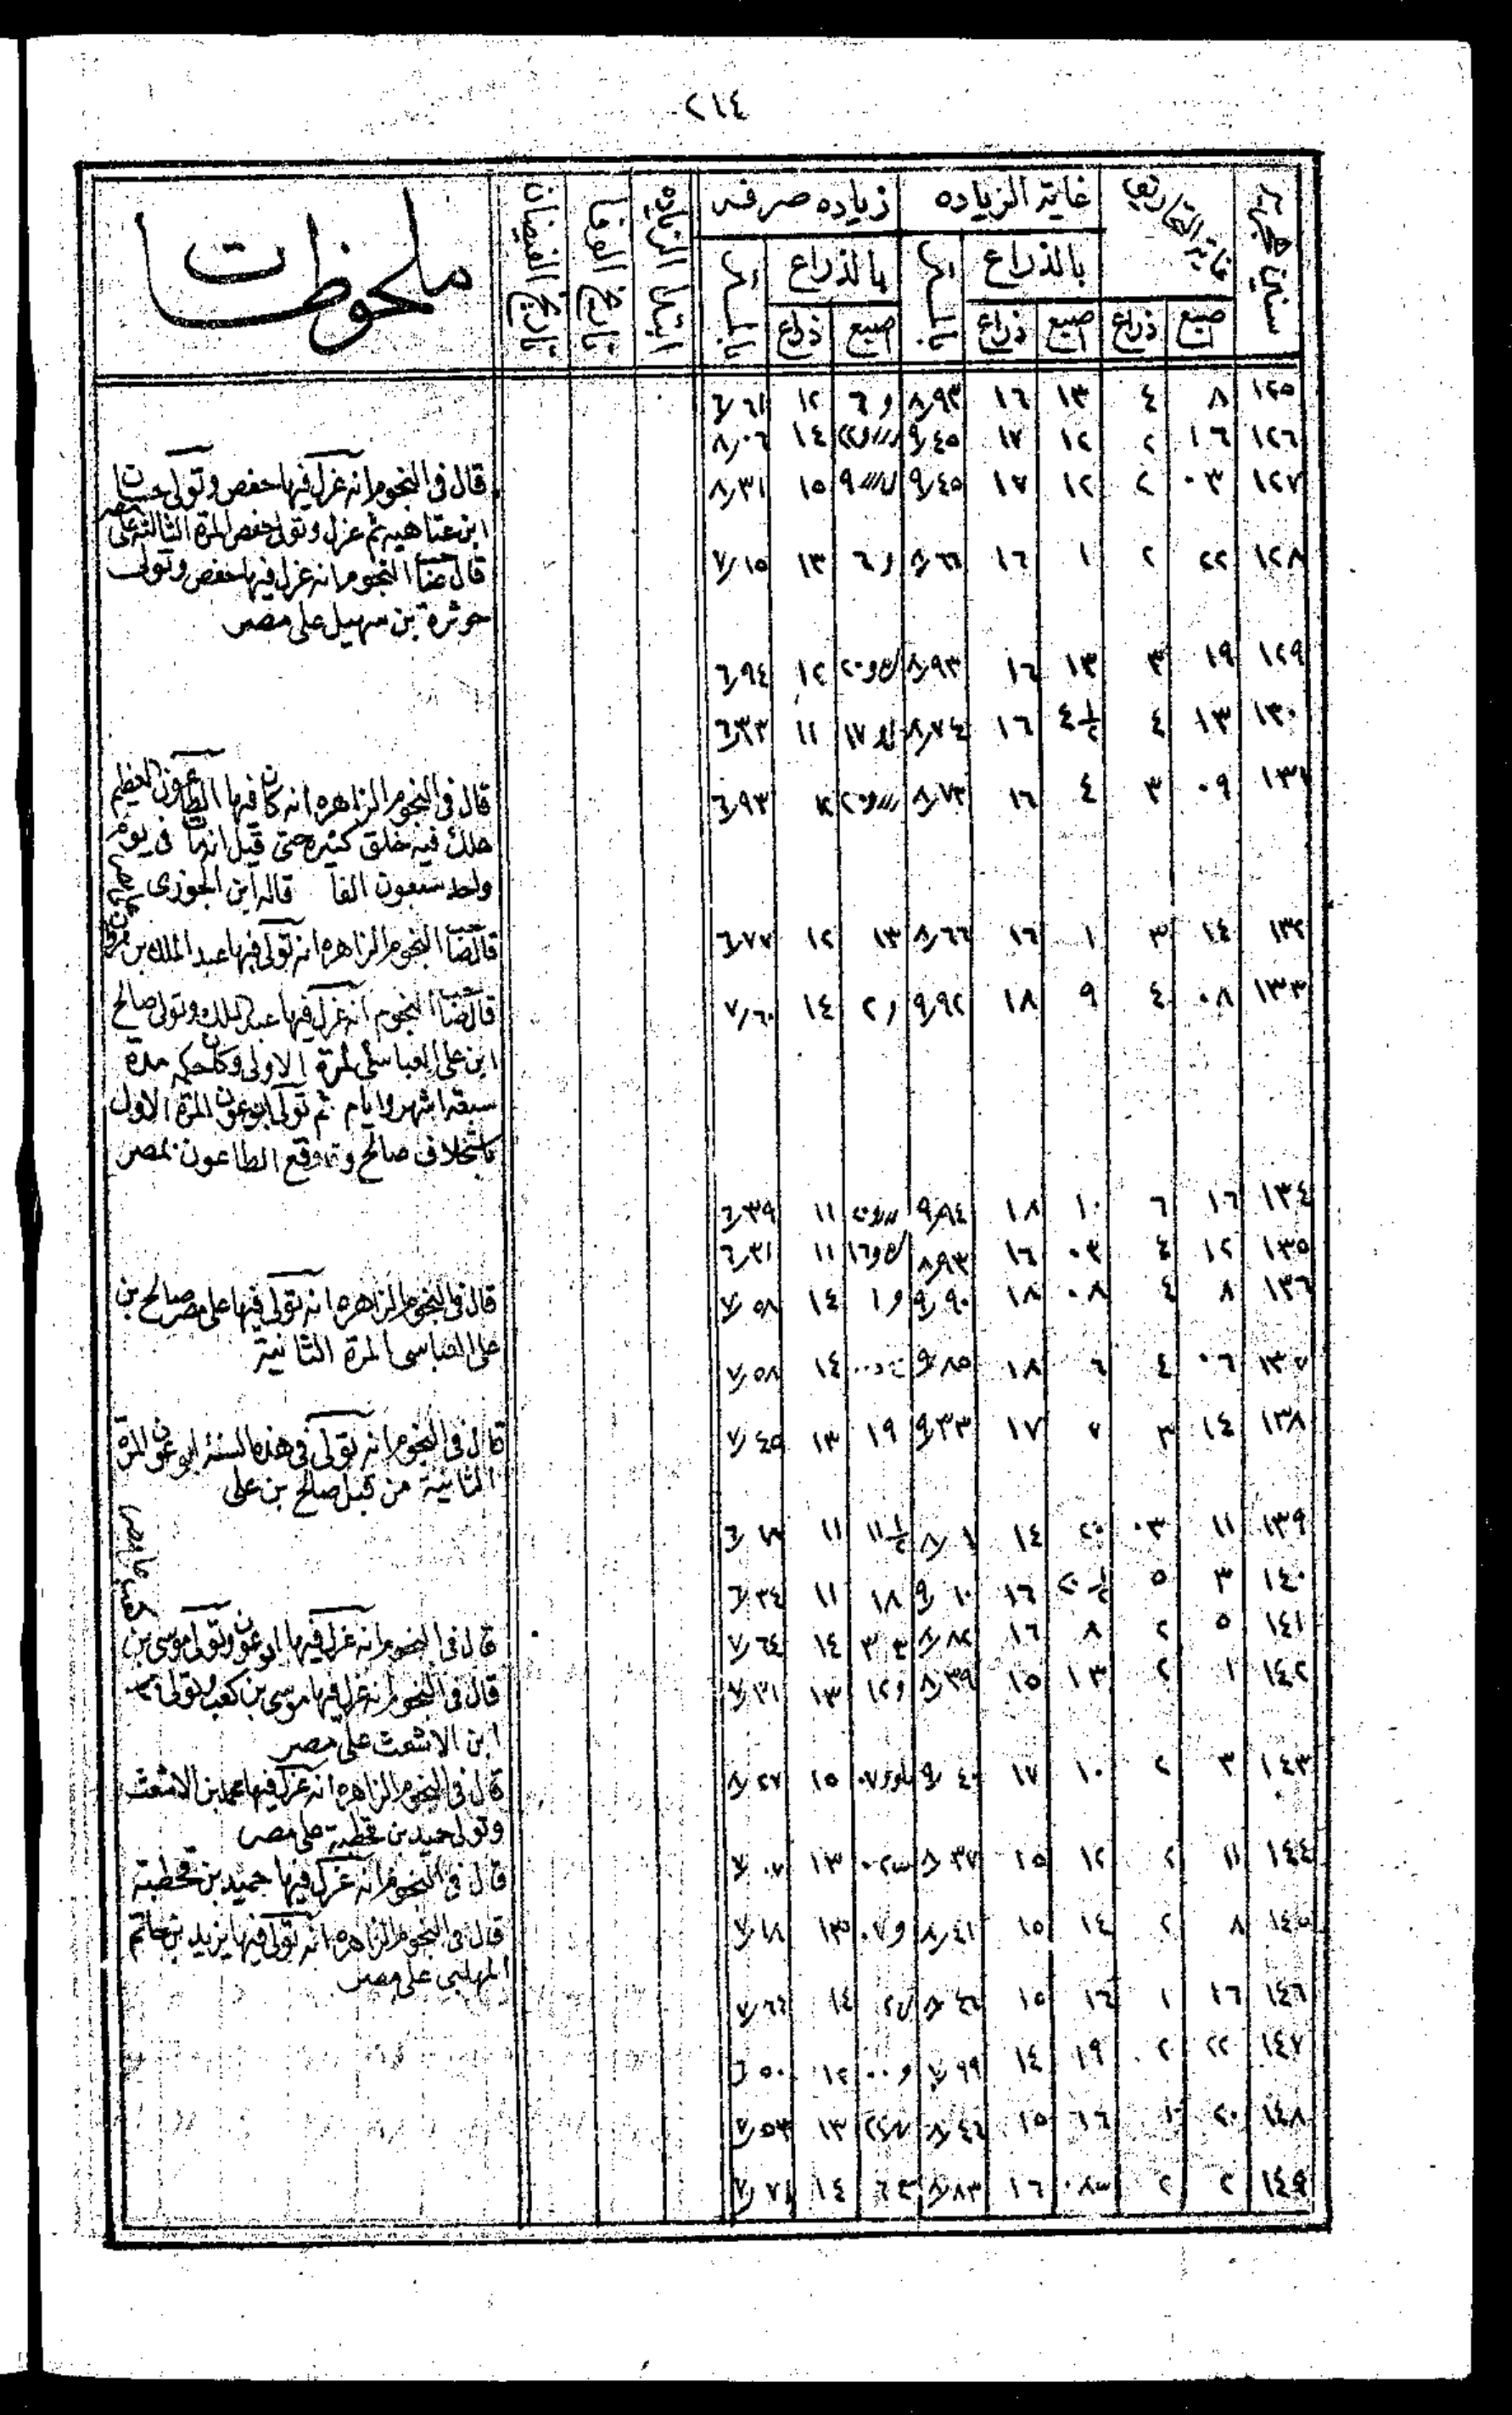 ٢١٤
سنين هجرية
غاية التحاريق
غاية الزياده
زياده صرفه
ابتدا الزياده
تاريخ الوفا
تاريخ الفيضان
ملحوظات
بالذراع
بالذراع
اصبع ذراع اصبع ذراع اصبع ذراع
١٢٥ ٨ ٤ ١٣ ١٦ ٨٫٩٣ و ٦ ١٢ ٦٫٦١
١٢٦ ١٦ ٢ ١٢ ١٧ ٩٫٤٥ ١٤ ٨٫٠٦
١٢٧ ٠٣ ٢ ١٢ ١٧ ٩٫٤٥ ٩ ١٥ ٨٫٣١
قال فى النجوم انه عزل فيها حفص وتولى حسان
ابن عتاهيه ثم عزل وتولى حفص المرة الثالثة على مصر
١٢٨ ٢٢ ٢ ١ ١٦ ٨٫٦٦ و ٦ ١٣ ٧٫١٥
قال صا النجوم انه عزل فيها حفص وتولى
حوثرة بن سهيل على مصر
١٢٩ ١٩ ٣ ١٣ ١٦ ٨٫٩٣ ١٢ ٦٫٩٤
١٣٠ ١٣ ٤ ٤½ ١٦ ٨٫٧٤ ١٧ ١١ ٦٫٣٣
١٣١ ٠٩ ٣ ٤ ١٦ ٨٫٧٣ ٦٫٩٣
قال فى النجوم الزاهره انه كان فيها الطاعون العظيم
هلك فيه خلق كثيره حتى قيل انه مات فى يوم
واحد سبعون الفا قاله ابن الجوزى
١٣٢ ١٤ ٣ ١ ١٦ ٨٫٦٦ ١٣ ١٢ ٦٫٧٧
قال صا النجوم الزاهره انه تولى فيها عبد الملك بن مروان على مصر
١٣٣ ٠٨ ٤ ٩ ١٨ ٩٫٩٢ و ٢ ١٤ ٧٫٦٠
قال صا النجوم انه عزل فيها عبد الملك وتولى صالح
ابن على العباسى المرة الاولى وكان حكمه مدة
سبعة اشهر وايام ثم تولى ابو عون المرة الاول
باستخلاف صالح وقد وقع الطاعون بمصر
١٣٤ ١٦ ٦ ١٠ ١٨ ٩٫٩٤ ١١ ٦٫٣٩
١٣٥ ١٢ ٤ ٠٣ ١٦ ٨٫٩٣ ١٦ ١١ ٦٫٣١
١٣٦ ٨ ٤ ٠٨ ١٨ ٩٫٩٠ و ١ ١٤ ٧٫٥٨
قال فى النجوم الزاهره انه تولى فيها على مصر صالح بن
على العباسى المرة الثانية
١٣٧ ٠٦ ٤ ٦ ١٨ ٩٫٨٥ ١٤ ٧٫٥٨
١٣٨ ١٤ ٣ ٧ ١٧ ٩٫٣٣ ١٩ ١٣ ٧٫٤٥
قال فى النجوم انه تولى فى هذه السنة ابو عون المرة
الثانية من قبل صالح بن على
١٣٩ ١١ ٠٣ ٢٠ ١٤ ١١½ ١١
١٤٠ ٣ ٥ ١٦ ٩٫١٠ ١٨ ١١ ٦٫٣٤
١٤١ ٥ ٢ ٨ ١٦ ٨٫٨٢ ٣ ١٤ ٧٫٦٤
قال فى النجوم انه عزل فيها ابو عون وتولى موسى بن كعب على مصر
١٤٢ ١ ٢ ١٣ ١٥ ٨٫٣٩ و ١٢ ١٣ ٧٫٣١
قال فى النجوم انه عزل فيها موسى بن كعب وتولى محمد
ابن الاشعث على مصر
١٤٣ ٣ ٢ ١٠ ١٧ ٩٫٤٠ ٠٧ ١٥ ٨٫٢٧
قال فى النجوم الزاهره انه عزل فيها محمد بن الاشعث
وتولى حميد بن قحطبة على مصر
١٤٤ ١١ ٢ ١٢ ١٥ ٨٫٣٧ ١٣ ٧٫٠٧
قال فى النجوم انه عزل فيها حميد بن قحطبة
١٤٥ ٨ ٢ ١٤ ١٥ ٨٫٤١ و ٠٧ ١٣ ٧٫١٨
قال فى النجوم الزاهره انه تولى فيها يزيد بن حاتم
المهلبى على مصر
١٤٦ ١٦ ١ ١٦ ١٥ ٨٫٤٦ ١٤ ٧٫٦٦
١٤٧ ٢٢ ٢ ١٩ ١٤ ٧٫٩٩ و ٠٠ ١٢ ٦٫٥٠
١٤٨ ٢٠ ١ ١٦ ١٥ ٨٫٤٦ ١٣ ٧٫٥٣
١٤٩ ٢ ٢ ٠٨ ١٦ ٨٫٨٣ ٦ ١٤ ٧٫٧٤